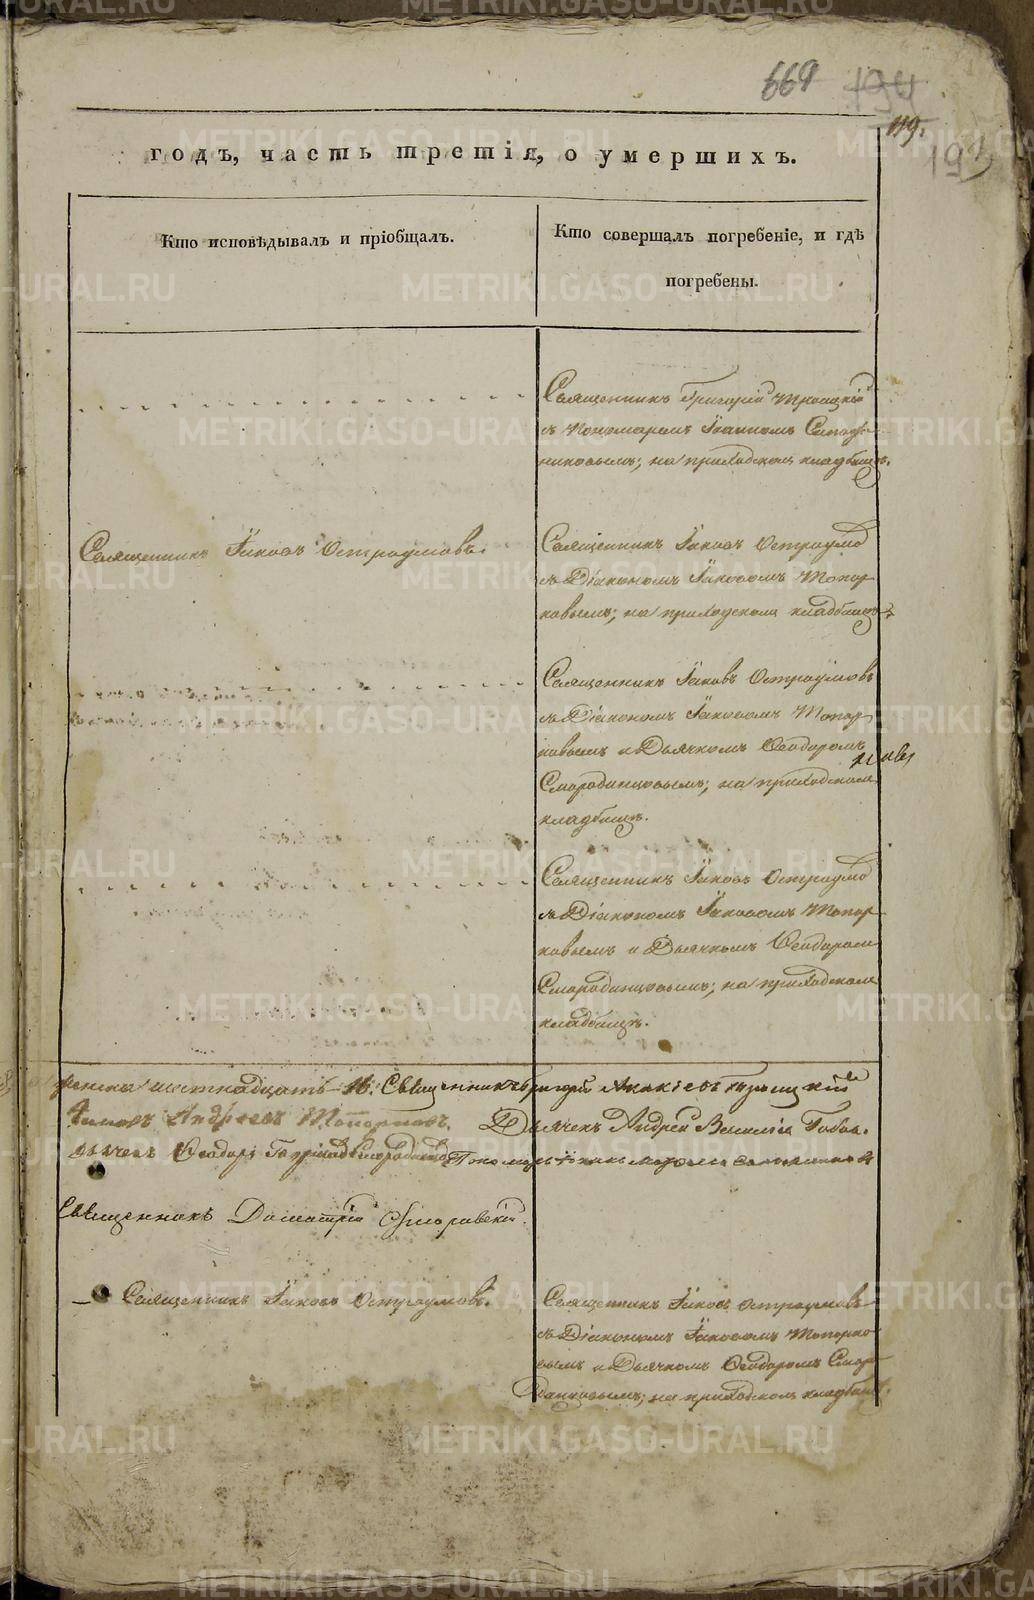 669 194
119.
193
годъ, часть третія, о умершихъ.
Кто исповѣдывалъ и пріобщалъ.
Кто совершалъ погребеніе, и гдѣ
погребены.
Священникъ Григорій Троицкій
съ Пономаремъ Іоанномъ
никовымъ; на приходскомъ кладбищѣ.
Священникъ Іаковъ Остроумовъ.
Священникъ Іаковъ Остроумов
съ Діакономъ Іаковомъ Топор
ковымъ; на приходскомъ кладбищѣ.
Священникъ Іаковъ Остроумовъ
съ Діакономъ Іаковомъ Топор
ковымъ и Дьячкомъ Ѳеодоромъ
Смородинцовымъ; на приходскомъ
кладбищѣ.
Священникъ Іаковъ Остроумов
съ Діакономъ Іаковомъ Топор
ковымъ и Дьячкомъ Ѳеодоромъ
Смородинцовымъ; на приходскомъ
кладбищѣ.
шестнадцать 16. Священникъ Григорій Троицкій
Іаковъ Андреевъ Топорковъ. Дьячекъ Андрей
дьячекъ Ѳеодоръ Смородинцовъ Пономарь Іоаннъ
Священникъ Димитрій
Священникъ Іаковъ Остроумовъ.
Священникъ Іаковъ Остроумовъ
съ Діакономъ Іаковомъ Топорко
вымъ и Дьячкомъ Ѳеодоромъ Смор
динцовымъ; на приходскомъ кладбищѣ.
METRIKI.GASO-URAL.RU